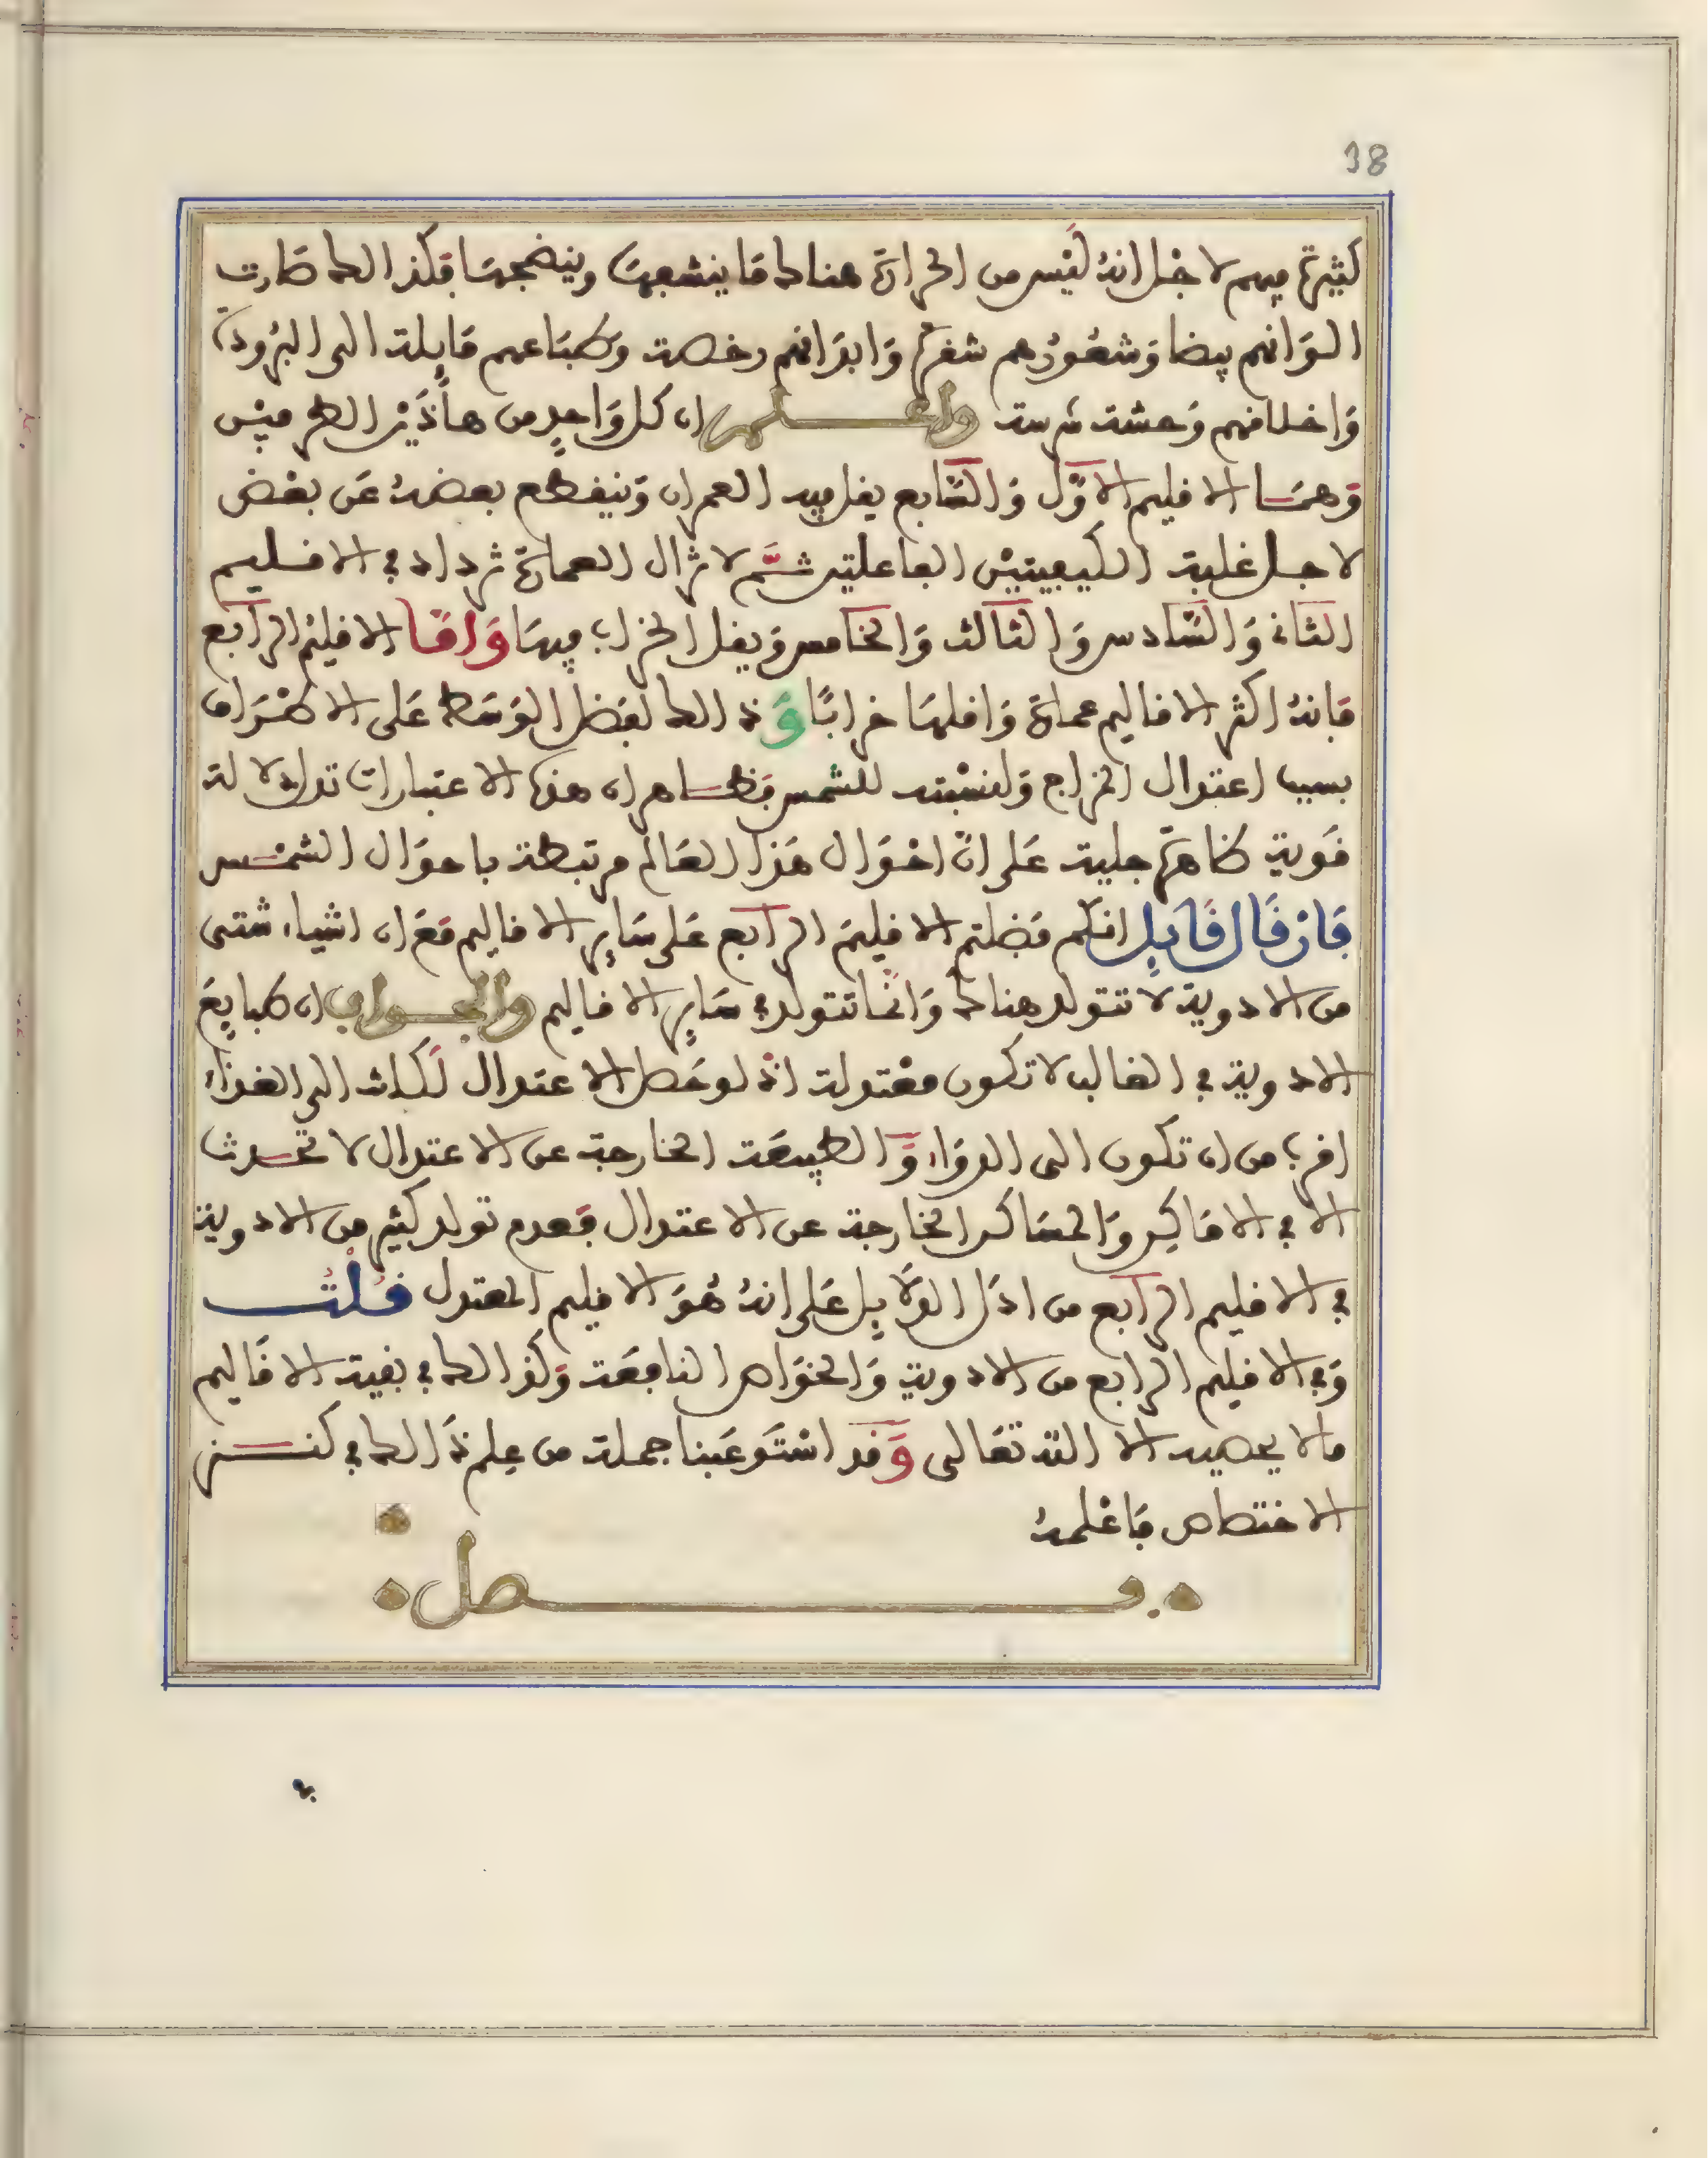 38
كثيرة فيهم لاجل انه ليس من الحرارة هنالك ما ينشفها وينضجها فلذالك صارت
الوانهم بيضا وشعورهم شقرة وابدانهم رخصة وطباعهم مايلة الى البرودة
واخلاقهم وحشة شرسة واعلم ان كل واحد من هاذين الطرفين
وهما الاقليم الاول والسابع يقل فيه العمران وينقطع بعضه عن بعض
لاجل غلبة الكيفيتين الفاعلتين ثم لا تزال العمارة تزداد في الاقليم
الثاني والسادس والثالث والخامس ويقل الخراب فيها واما الاقليم الرابع
فانه اكثر الاقاليم عمارة واقلها خرابا وذالك لفضل الوسط على الاطراف
بسبب اعتدال المزاج ولنسبته للشمس فظاهر ان هذه الاعتبارات تدل دلالة
قوية ظاهرة جلية على ان احوال هذا العالم مرتبطة باحوال الشمس
فان قال قايل انكم فضلتم الاقليم الرابع على ساير الاقاليم مع ان اشياء شتى
من الادوية لا تتولد هنالك وانما تتولد في ساير الاقاليم والجواب ان طبايع
الادوية في الغالب لا تكون معتدلة اذ لو حصل الاعتدال لكانت الى الغذاء
اقرب من ان تكون الى الدواء والطبيعة الخارجة عن الاعتدال لا تحدث
الا في الاماكن والمساكن الخارجة عن الاعتدال فعدم تولد كثير من الادوية
في الاقليم الرابع من ادل الدلايل على انه هو الاقليم المعتدل قلت
وفي الاقليم الرابع من الادوية والخواص النافعة وكذالك في بقية الاقاليم
ما لا يحصيه الا الله تعالى وقد استوعبنا جملة من علم ذالك في كنز
الاختصاص فاعلمه
فصل